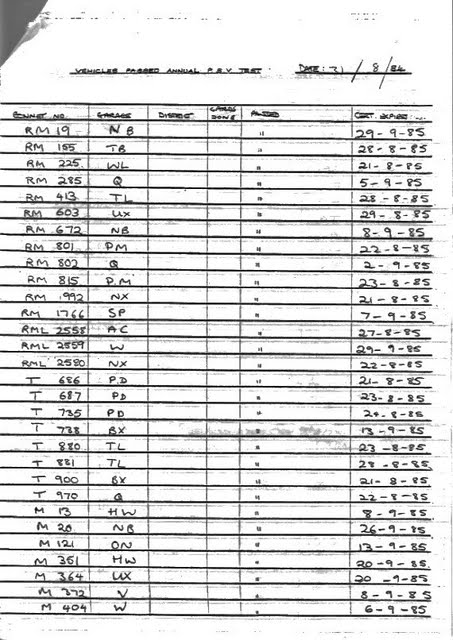 VEHICLES PASSED ANNUAL P.S.V TEST DATE: 31/8/84
BONNET NO. GARAGE DISTRICT CARDS DONE PASSED CERT. EXPIRES
RM 19 NB " 29-9-85
RM 155 TB " 28-8-85
RM 225 WL " 21-8-85
RM 285 Q " 5-9-85
RM 413 TL " 28-8-85
RM 603 UX " 29-8-85
RM 672 NB " 8-9-85
RM 801 PM " 22-8-85
RM 802 Q " 2-9-85
RM 815 P.M " 23-8-85
RM 1992 NX " 21-8-85
RM 1766 SP " 7-9-85
RML 2558 AC " 27-8-85
RML 2559 W " 29-9-85
RML 2580 NX " 22-8-85
T 686 P.D " 21-8-85
T 687 PD " 23-8-85
T 735 PD " 24-8-85
T 738 BX " 13-9-85
T 880 TL " 23-8-85
T 881 TL " 28-8-85
T 900 BX " 21-8-85
T 970 Q " 22-8-85
M 13 HW " 8-9-85
M 20 NB " 26-9-85
M 121 ON " 13-9-85
M 351 HW " 20-9-85
M 364 UX " 20-9-85
M 372 V " 8-9-85
M 404 W " 6-9-85